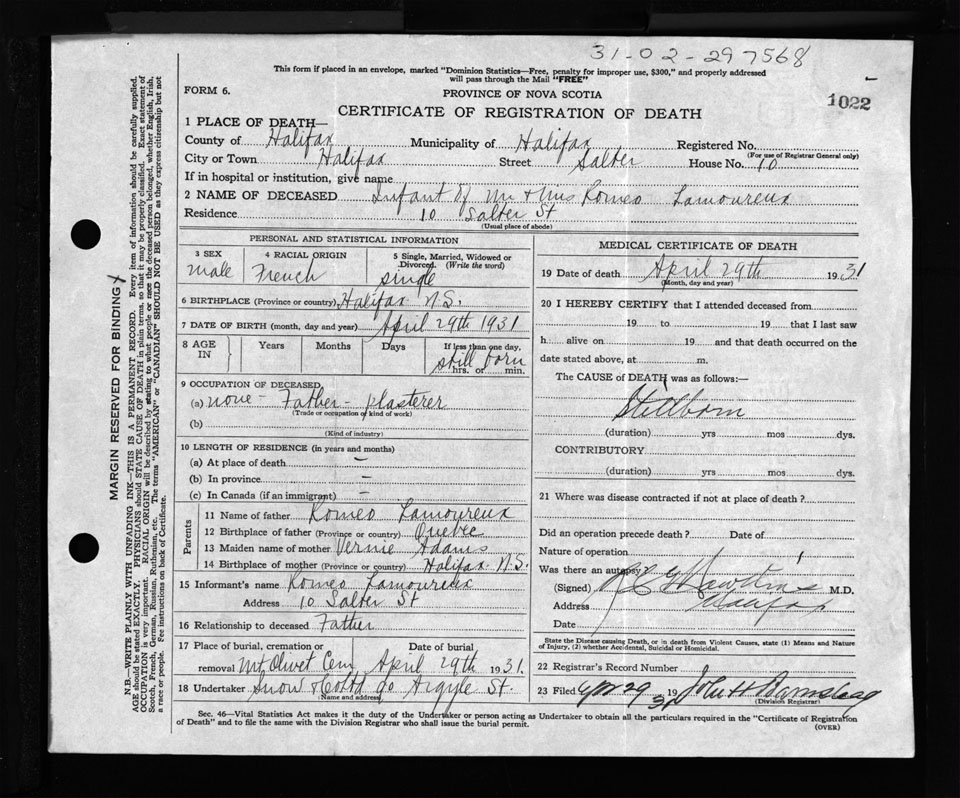 31-02-297568
This form if placed in an envelope, marked "Dominion Statistics—Free, penalty for improper use, $300," and properly addressed
will pass through the Mail "FREE"
FORM 6.
PROVINCE OF NOVA SCOTIA
1022
CERTIFICATE OF REGISTRATION OF DEATH
1 PLACE OF DEATH—
County of Halifax Municipality of Halifax Registered No.
(For use of Registrar General only)
City or Town Halifax Street Salter House No. 10
If in hospital or institution, give name
2 NAME OF DECEASED Infant of Mr & Mrs Romeo Lamoureux
Residence 10 Salter St
(Usual place of abode)
PERSONAL AND STATISTICAL INFORMATION
3 SEX 4 RACIAL ORIGIN 5 Single, Married, Widowed or Divorced. (Write the word)
male French single
6 BIRTHPLACE (Province or country) Halifax N.S.
7 DATE OF BIRTH (month, day and year) April 29th 1931
8 AGE IN Years Months Days If less than one day,
still born
hrs. or min.
9 OCCUPATION OF DECEASED
(a) none - Father - plasterer
(Trade or occupation or kind of work)
(b)
(Kind of industry)
10 LENGTH OF RESIDENCE (in years and months)
(a) At place of death –
(b) In province –
(c) In Canada (if an immigrant) –
Parents
11 Name of father Romeo Lamoureux
12 Birthplace of father (Province or country) Quebec
13 Maiden name of mother Vernie Adams
14 Birthplace of mother (Province or country) Halifax N.S.
15 Informant's name Romeo Lamoureux
Address 10 Salter St
16 Relationship to deceased Father
17 Place of burial, cremation or Date of burial
removal Mt Olivet Cem April 29th 1931.
18 Undertaker Snow & Co Ltd 90 Argyle St.
(Name and address)
MEDICAL CERTIFICATE OF DEATH
19 Date of death April 29th 1931
(Month, day and year)
20 I HEREBY CERTIFY that I attended deceased from
19 to 19 that I last saw
h alive on 19 and that death occurred on the
date stated above, at m.
The CAUSE of DEATH was as follows:—
Stillborn
(duration) yrs mos dys.
CONTRIBUTORY
(duration) yrs mos dys.
21 Where was disease contracted if not at place of death?
Did an operation precede death? Date of
Nature of operation
Was there an autopsy
(Signed) M.D.
Address Halifax
Date
State the Disease causing Death, or in death from Violent Causes, state (1) Means and Nature
of Injury, (2) whether Accidental, Suicidal or Homicidal.
22 Registrar's Record Number
23 Filed Apr 29 1931
(Division Registrar)
Sec. 46—Vital Statistics Act makes it the duty of the Undertaker or person acting as Undertaker to obtain all the particulars required in the "Certificate of Registration
of Death" and to file the same with the Division Registrar who shall issue the burial permit. (OVER)
MARGIN RESERVED FOR BINDING
N.B.—WRITE PLAINLY WITH UNFADING INK—THIS IS A PERMANENT RECORD. Every item of information should be carefully supplied.
AGE should be stated EXACTLY. PHYSICIANS should STATE CAUSE OF DEATH in plain terms, so that it may be properly classified. Exact statement of
OCCUPATION is very important. RACIAL ORIGIN will be described by stating to what people or race the deceased person belonged, whether English, Irish,
Scotch, French, German, Russian, Ruthenian, etc. The terms "AMERICAN" or "CANADIAN" SHOULD NOT BE USED as they express citizenship but not
a race or people. See instructions on back of Certificate.